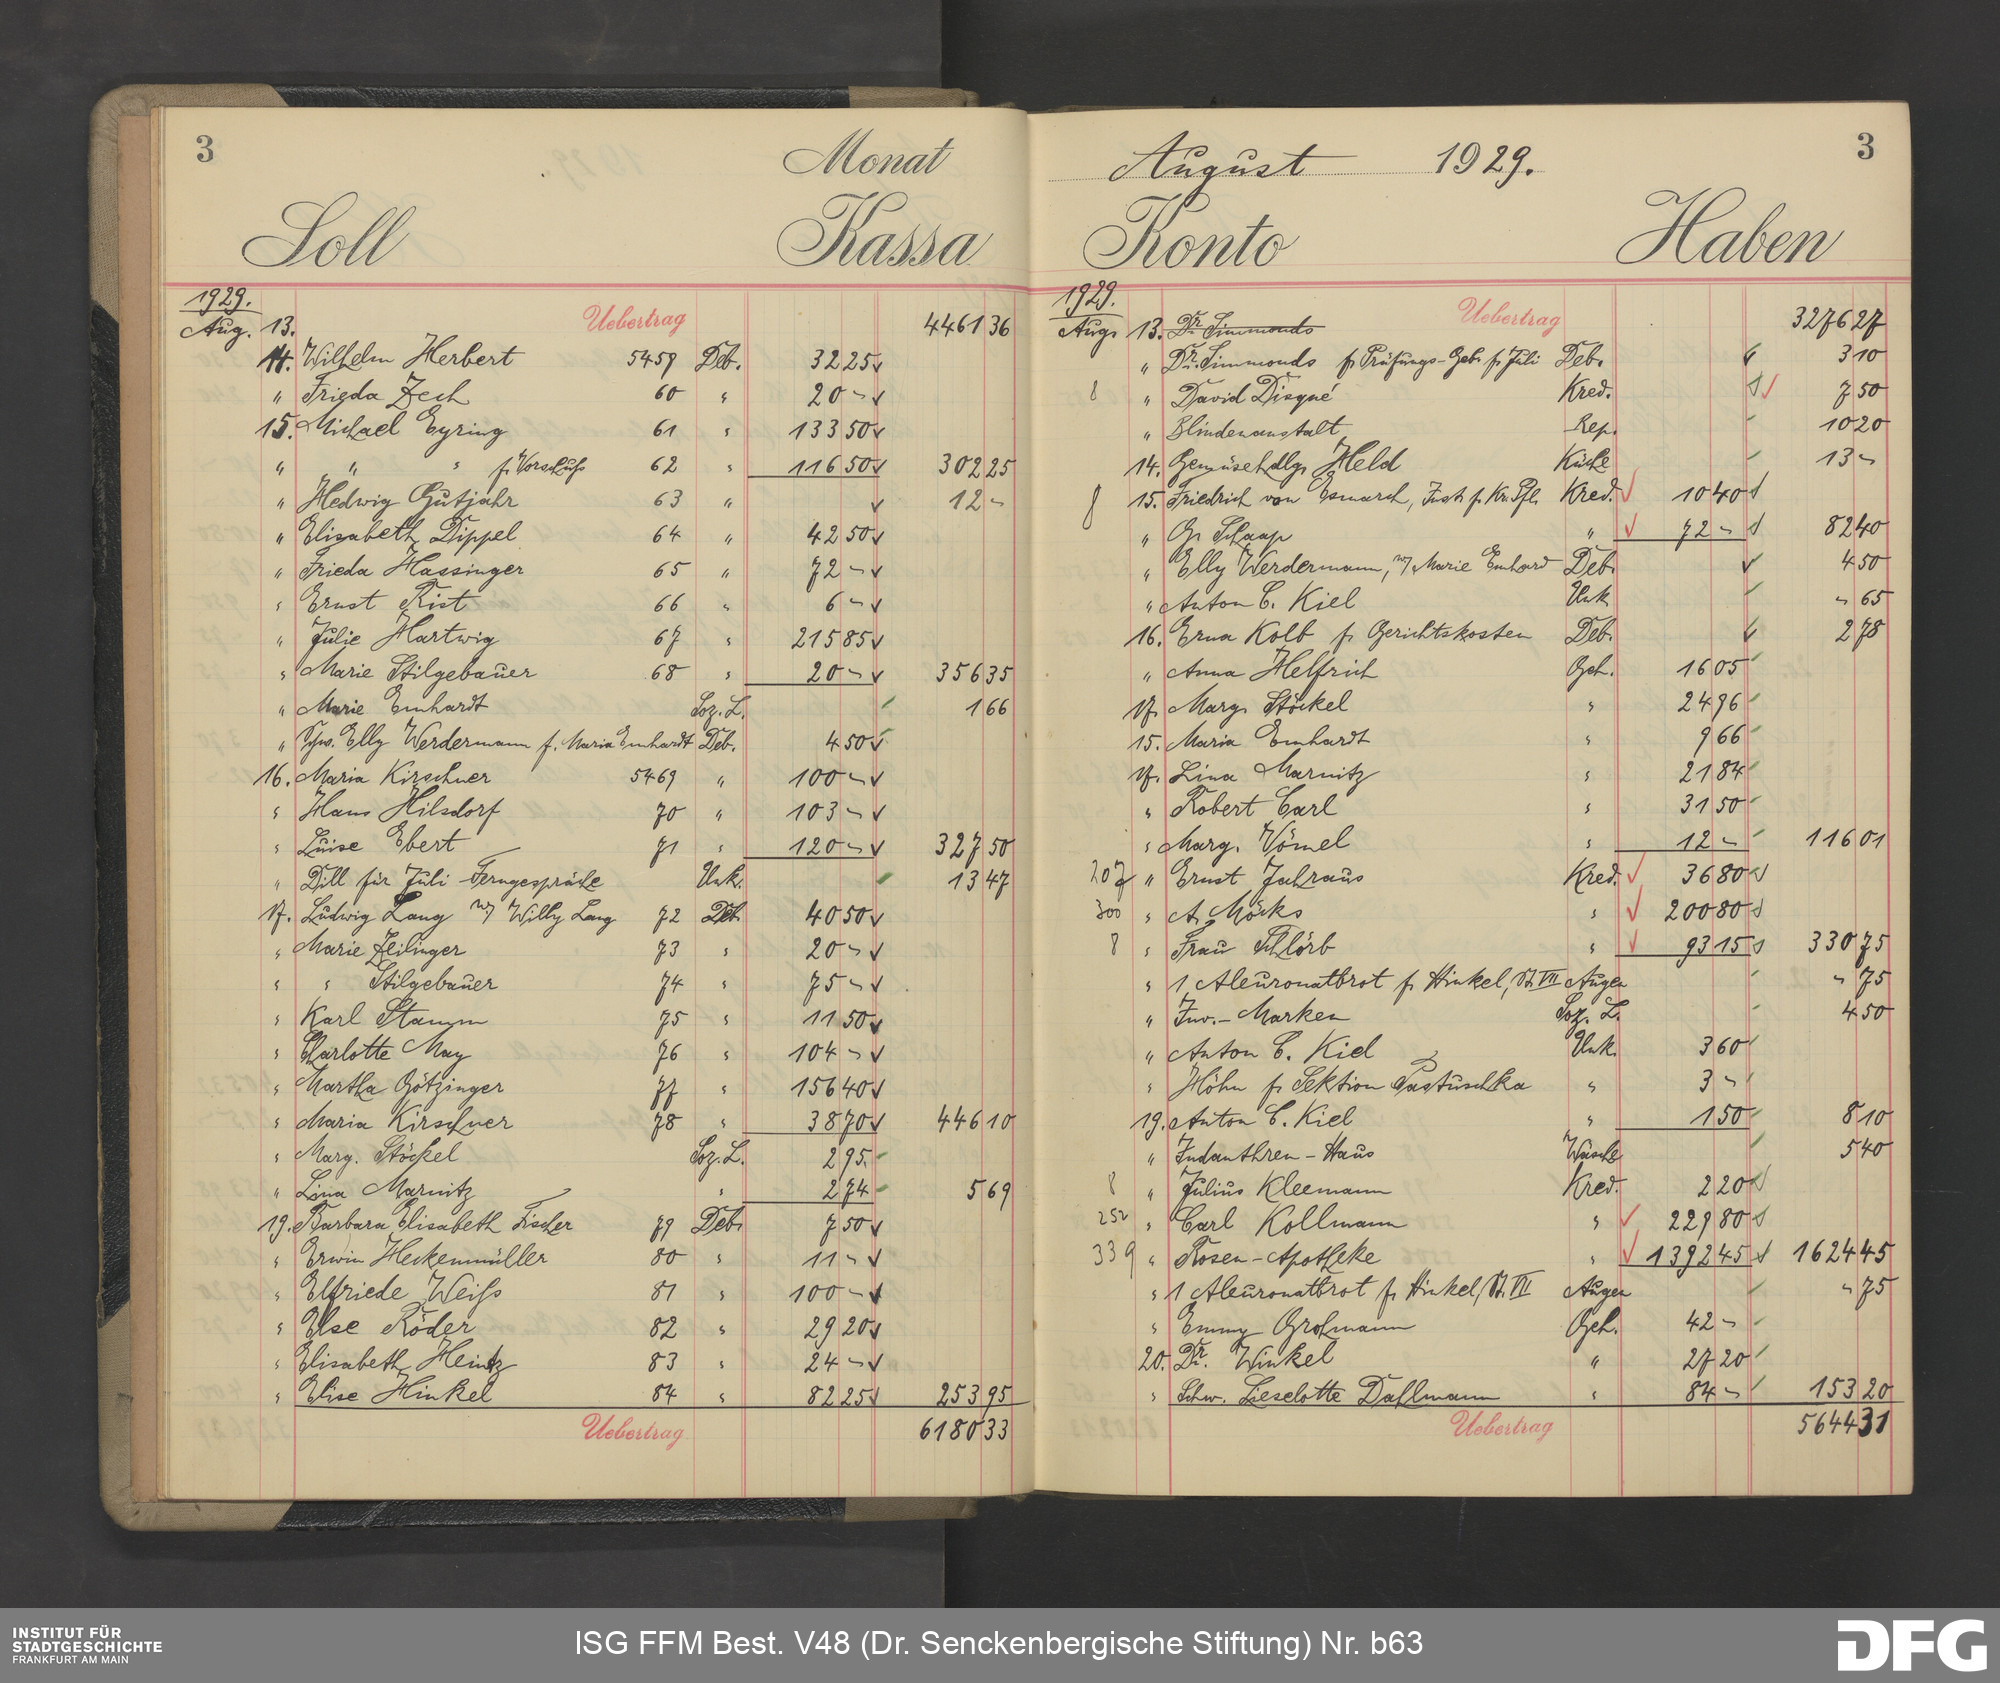 3 Monat
Soll Kassa
1929. Uebertrag
Aug. 13. 4461 36
14. Wilhelm Herbert 5459 Deb. 32 25
" Frieda Zech 60 " 20 -
15. Michael Eyring 61 " 133 50
" " " f. Vorschuß 62 " 116 50 302 25
" Hedwig Gutjahr 63 " 12 -
" Elisabeth Dippel 64 " 42 50
" Frieda Hassinger 65 " 72 -
" Ernst Rist 66 " 6 -
" Julie Hartwig 67 " 215 85
" Marie Stilgebauer 68 " 20 - 356 35
" Marie Emhardt Soz. L. 1 66
" Schw. Elly Werdermann f. Maria Emhardt Deb. 4 50
16. Maria Kirschner 5469 " 100 -
" Hans Hilsdorf 70 " 103 -
" Luise Ebert 71 " 120 - 327 50
" Dill für Juli-Ferngespräche Unk. 13 47
17. Ludwig Lang w/ Willy Lang 72 Deb. 40 50
" Marie Zeilinger 73 " 20 -
" " Stilgebauer 74 " 75 -
" Karl Stamm 75 " 11 50
" Charlotte May 76 " 104 -
" Martha Götzinger 77 " 156 40
" Maria Kirschner 78 " 38 70 446 10
" Marg. Stöckel Soz. L. 2 95
" Lina Marnitz " 2 74 5 69
19. Barbara Elisabeth Fischer 79 Deb. 7 50
" Erwin Heckenmüller 80 " 11 -
" Elfriede Weiß 81 " 100 -
" Else Röder 82 " 29 20
" Elisabeth Heintz 83 " 24 -
" Elise Hinkel 84 " 82 25 253 95
Uebertrag 6180 33
August 1929. 3
Konto Haben
1929. Uebertrag
Aug. 13. Dr. Simmonds 3276 27
" Dr. Simmonds f. Prüfungs-Geb. f. Juli Deb. 3 10
8 " David Disqué Kred. 7 50
" Blindenanstalt Rep. 10 20
14. Gemüsehdlg. Held Küche 13 -
8 15. Friedrich von Esmarch, Inst. f. Kr. Pfl. Kred. 10 40
" G. Schaap " 72 - 82 40
" Elly Werdermann, w/ Marie Emhard Deb. 4 50
" Anton C. Kiel Unk. - 65
16. Erna Kolb f. Gerichtskosten Deb. 2 78
" Anna Helfrich Geh. 16 05
17. Marg. Stöckel " 24 96
15. Maria Emhardt " 9 66
17. Lina Marnitz " 21 84
" Robert Carl " 31 50
" Marg. Vömel " 12 - 116 01
207 " Ernst Jahraus Kred. 36 80
300 " A. Möcks " 200 80
8 " Frau Schlörb " 93 15 330 75
" 1 Aleuronatbrot f. Hinkel, St. VII Augen - 75
" Inv.-Marken Soz. L. 4 50
" Anton C. Kiel Unk. 3 60
" Höhn f. Sektion Pastuschka " 3 -
19. Anton C. Kiel " 1 50 8 10
" Indanthren-Haus Wäsche 5 40
8 " Julius Kleemann Kred. 2 20
252 " Carl Kollmann " 229 80
339 " Rosen-Apotheke " 1392 45 1624 45
" 1 Aleuronatbrot f. Hinkel, St. VII Augen - 75
" Emmy Grohmann Geh. 42 -
20. Dr. Winkel " 27 20
" Schw. Lieselotte Dahlmann " 84 - 153 20
Uebertrag 5644 31
INSTITUT FÜR
STADTGESCHICHTE
FRANKFURT AM MAIN
ISG FFM Best. V48 (Dr. Senckenbergische Stiftung) Nr. b63
DFG